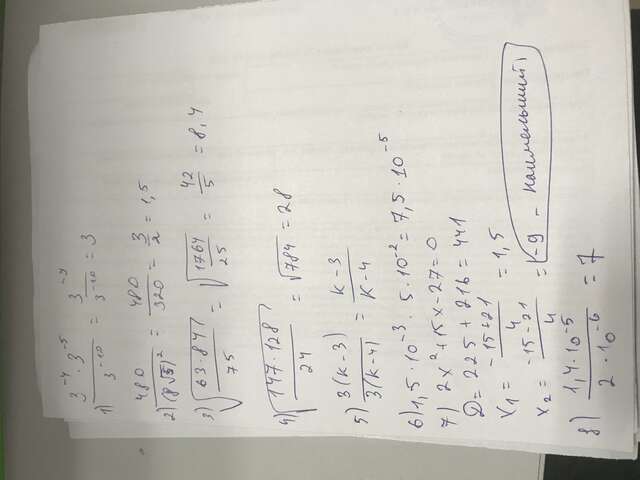 1) 3^-4 · 3^-5 / 3^-10 = 3^-9 / 3^-10 = 3
2) 480 / (8√5)² = 480 / 320 = 3/2 = 1,5
3) √(63·847 / 75) = √(1764 / 25) = 42/5 = 8,4
4) √(147·128 / 24) = √784 = 28
5) 3(k-3) / 3(k-4) = k-3 / k-4
6) 1,5·10^-3 · 5·10^-2 = 7,5·10^-5
7) 2x²+15x-27=0
D = 225 + 216 = 441
x₁ = -15+21 / 4 = 1,5
x₂ = -15-21 / 4 = -9 - наименьший
8) 1,4·10^-5 / 2·10^-6 = 7